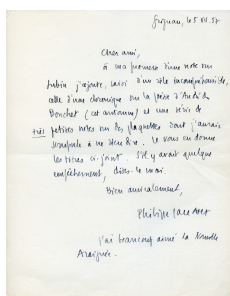 Grignan, le 5 VII. 57
Cher ami,
à ma promesse d'une note sur
Aubin j'ajoute, saisi d'un zèle incompréhensible,
celle d'une chronique sur la poésie d'André du
Bouchet (cet automne) et une série de
très petites notes sur des plaquettes dont j'aurais
simplement à me dire. Je vous en donne
les titres ci-joint. S'il y avait quelque
empêchement, dites-le moi.
Bien amicalement,
Philippe Jaccottet
J'ai beaucoup aimé la Nouvelle
Araignée.